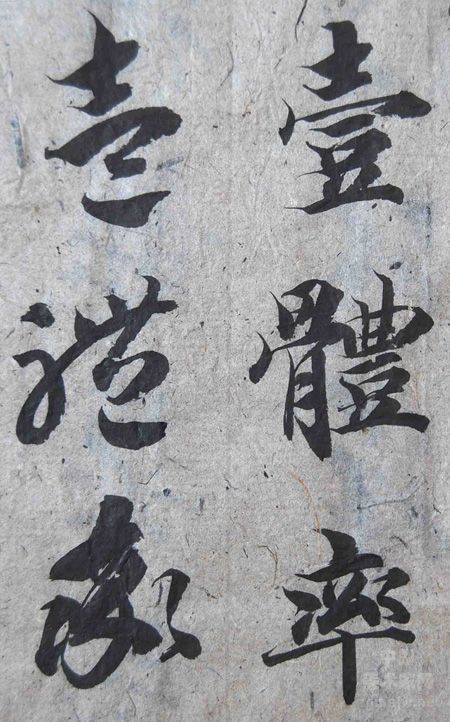 壹體率
壹體率